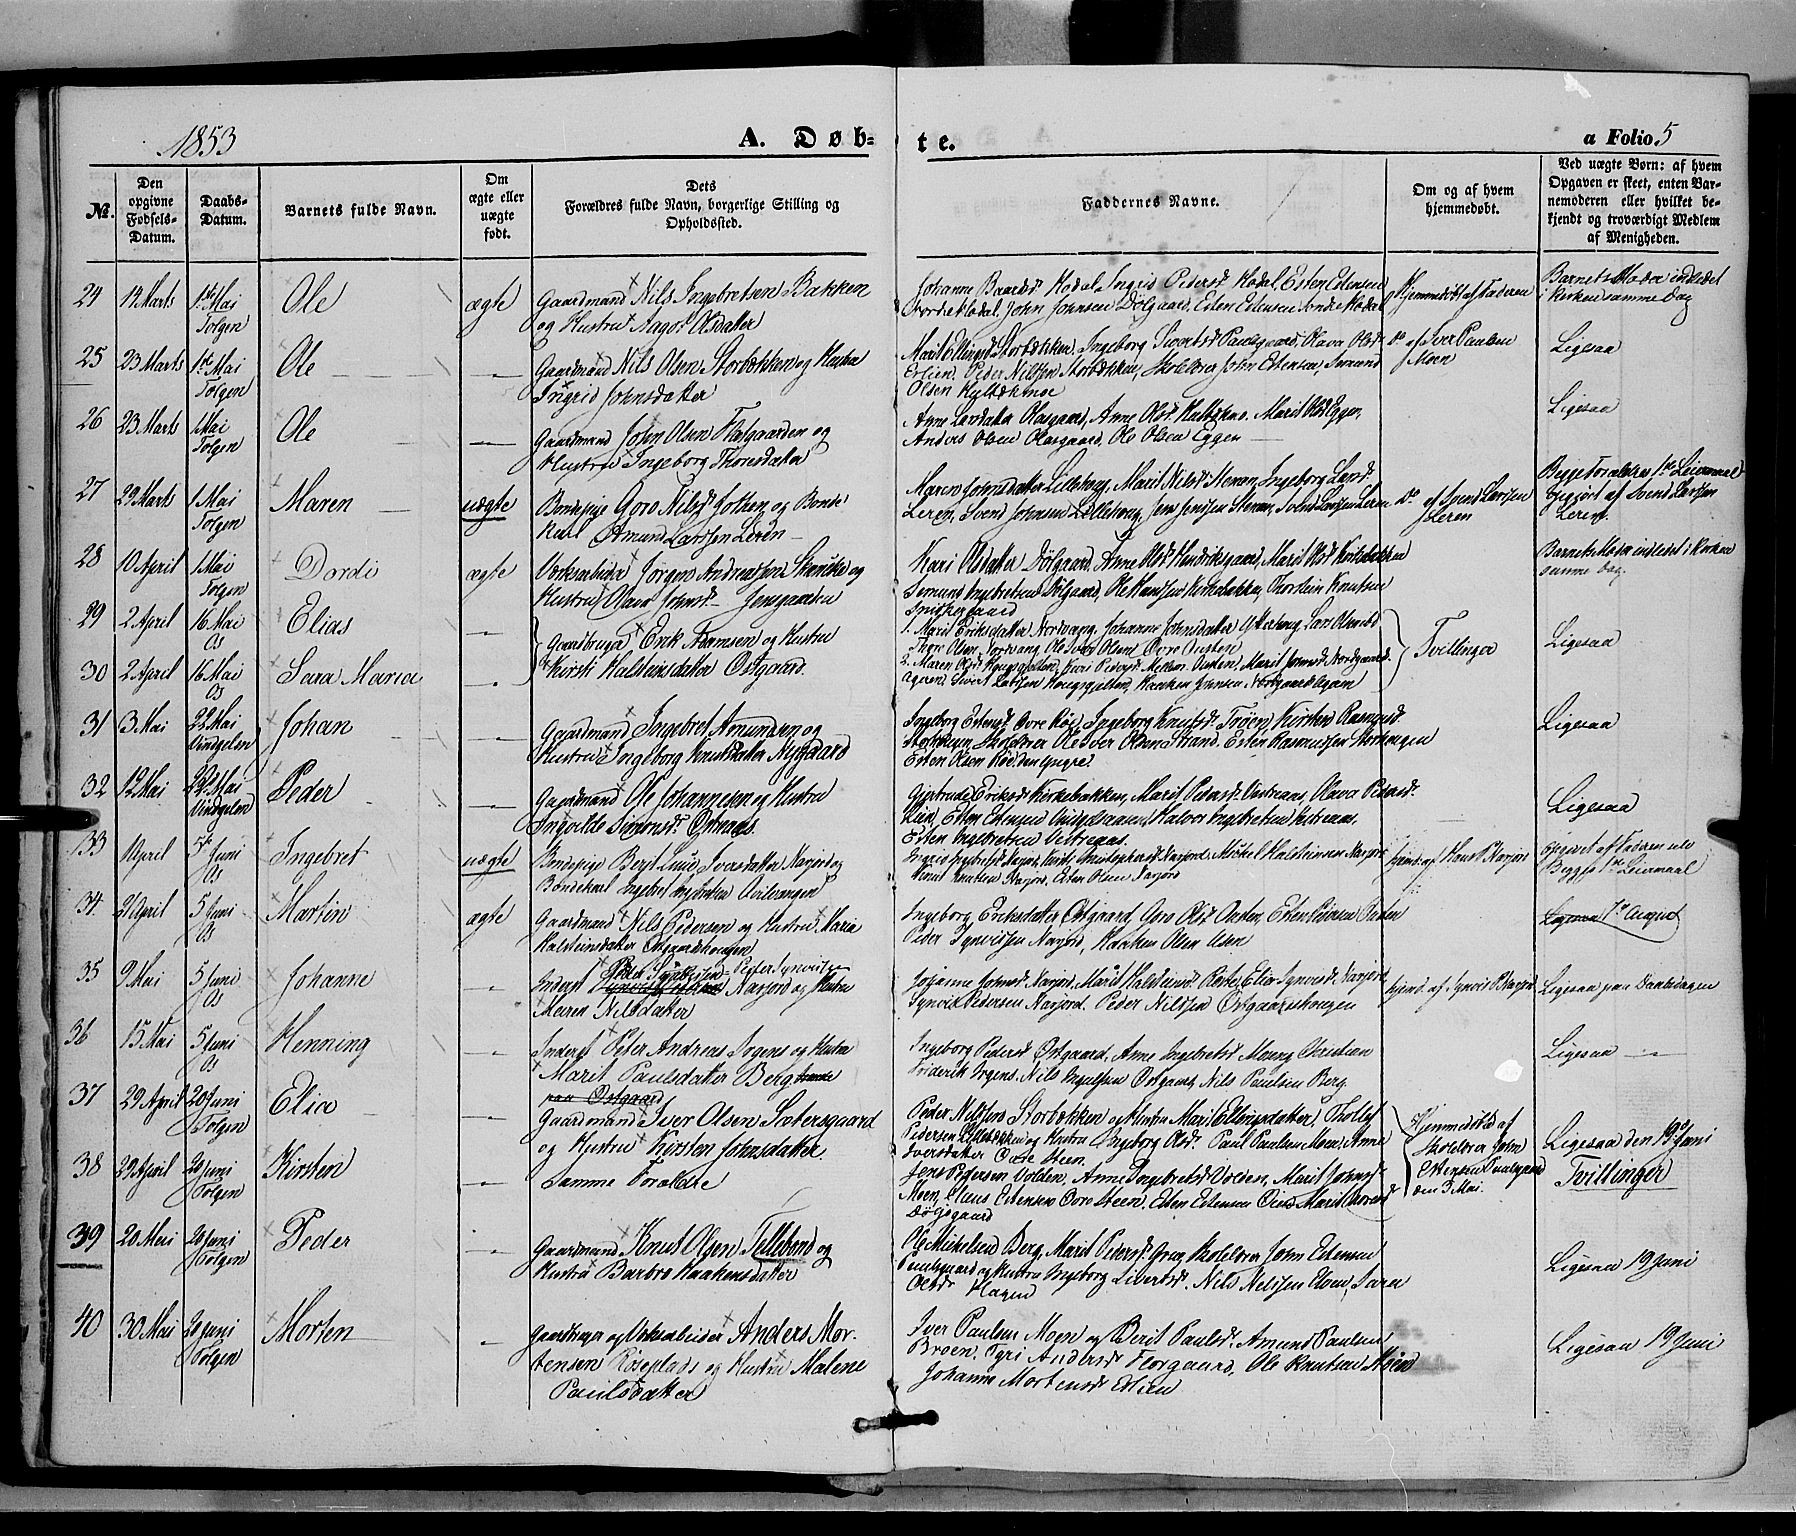 1853 A. Døb= te. a Folio 5
№.
Den opgivne Fødsels-Datum.
Daabs-Datum.
Barnets fulde Navn.
Om ægte eller uægte født.
Dets Forældres fulde Navn, borgerlige Stilling og Opholdssted.
Faddernes Navne.
Om og af hvem hjemmedøbt.
Ved uægte Børn: af hvem Opgaven er skeet, enten Barnemoderen eller hvilket bekjendt og troværdigt Medlem af Menigheden.
24 12 Marts 1ste Mai Tolgen Ole ægte
Gaardmand Nils Ingebretsen Bakken
og Hustru Aagot Olsdatter
Johanne Baardsd Hodal, Ingrid Pedersd Hodal, Esten Estensen
Nordre Hodal, John Johnsen Dølgaard, Esten Estensen Søndre Hodal
Hjemmedøbt af Faderen
Barnets Moder indledet
i Kirken samme Dag
25 23 Marts 1ste Mai Tolgen Ole
Gaardmand Nils Olsen Storbækken og Hustru
Ingrid Johnsdatter
Marit Ellingsd Storbækken, Ingeborg Sivertsd Paulsgaard, Olava Olsd
Erlien, Peder Nilssen Storbækken, Skolelærer John Estensen, Simund
Olsen
do af Iver Paulsen
Moen
Ligesaa
26 23 Marts 1 Mai Tolgen Ole
Gaardmand John Olsen og
Hustru Ingeborg Thoresdatter
Anne Larsdatter Olasgaard, Anne Olsd Marit Olsd Eggen,
Anders Olsen Olasgaard, Ole Olsen Eggen
Ligesaa
27 29 Marts 1 Mai Tolgen Maren uægte
Bondepige Goro Nilsd og Bonde-
karl Amund Larssen Leren
Maren Johnsdatter Lillehvag, Marit Nilsd Stenen, Ingeborg Larsd
Leren, Svend Johnsen Lillehvag, Jens Jenssen Stenen, Svend Larssen Leren
do af Svend Larssen
Leren
Begge Forældres 1ste Leiermaal
Opgjort af Svend Larssen
Leren.
28 10 April 1 Mai Tolgen Dordi ægte
Verksarbeider Jørgen Andreassen Skancke og
Hustru Olava Johnsd Jensgaarden
Kari Olsdatter Dølgaard, Anne Olsd Henriksgaard, Marit Olsd Kirkebakken
Simund Ingebretsen Dølgaard, Ole Hansen Kirkebakken, Thorstein Knutsen
Snikkergaard
Barnets Moder indledet i Kirken
samme Dag.
29 2 April 16 Mai Os Elias
Gaardbruger Erik Aamsen og Hustru
Kirsti Halsteinsdatter Østgaard.
1. Marit Eriksdatter Nordvang, Johanne Johnsdatter Lars
Tvillinger
Ligesaa
30 2 April 16 Mai Os Sara Maria
2. Maren Olsd Haugsgjelten, Kari Pedersd Mellem Ousten, Marit Jonsd Nordgaards-
ageren, Sivert Larssen Haugsgjelten, Haaken Johnsen Nordgaardsageren
31 3 Mai 22 Mai Vindgelen Johan
Gaardmand Ingebret Amundsen og
Hustru Ingeborg Knutsdatter Nygaard
Ingeborg Estensd Øvre Røe, Ingeborg Knutsd Trøen, Kirsten Rasmusd
Storhaugen, Skolelærer Ole Iver Olsen Strand, Esten Rasmussen Storhaugen
Esten Olsen Røe den yngre
Ligesaa
32 12 Mai 22 Mai Vindgelen Peder
Gaardmand Ole Johannesen og Hustru
Ingvilde Simonsd Østraas.
Gjertrude Eriksd Kirkebakken, Marit Pedersd Vestraas, Olava Pedersd
Lien, Esten Estensen Halvor Ingebretsen Vestraas,
Esten Ingebretsen Vestraas.
Ligesaa
33 1 April 5te Juni Os Ingebret uægte
Bondepige Berit Iversdatter Narjord og
Bondekarl Ingebret
Michel Halsteinsen Narjord
Knut Knutsen Narjord, Esten Olsen Narjord
hjemd. af Hans P. Narjord
Opgivet af Faderen
Begges 1ste Leiermaal
34 21 April 5 Juni Os Martin ægte
Gaardmand Nils Pedersen og Hustru Maria
Halsteinsdatter Østgaardshaugen
Ingeborg Eriksdatter Østgaard, Goro Olsd Ousten, Esten Pedersen Ousten
Peder Synvissen Narjord, Haaken Olsen
Ligesaa 7de August
35 9 Mai 5 Juni Os Johanne
Inderst Peder Synvissen Narjord og Hustru
Maren Nilsdatter
Johanne Johnsd Narjord, Marit Halsteinsd Elias Synvisd Narjord
Synvis Pedersen Narjord, Peder Nilssen Østgaardshaugen
hjemd. af Synvis P. Narjord
Ligesaa paa Daabsdagen
36 15 Mai 5 Juni Os Henning
Inderst Peter Andreas Irgens og Hustru
Marit Paulsdatter Berg
paa Østgaard
Ingeborg Pedersd Østgaard, Anne Ingebretsd Moseng, Christian
Friderik Irgens, Nils Østgaard, Nils Paulsen Berg
Ligesaa
37 29 April 20 Juni Tolgen Elia
Gaardmand Iver Olsen Sætersgaard
og Hustru Kirsten Johnsdatter
Peder Nilssen Storbækken og Hustru Marit Ellingsdatter, Tholef
Pedersen og Hustru Ingeborg Olsd. Paul Paulsen Moen, Anne
Iversdatter Øvre Steen.
Hjemmedøbte af
Skolelærer John
Estensen Paulsgaard
den 3 Mai.
Ligesaa den 19de Juni
Tvillinger
38 29 April 20 Juni Tolgen Kirsten
Samme Forældre
Jens Pedersen Volden, Anne Ingebretsd Volden, Marit Johnsd
Moen, Claus Estensen Øvre Steen, Esten Estensen Marit
39 20 Mai 20 Juni Tolgen Peder
Gaardmand Knut Olsen Tellebond og
Hustru Barbro Haakensdatter
Ole Mikelsen Berg, Marit Pedersd Skolelærer John Estensen
Paulsgaard og Hustru Ingeborg Sivertsd. Nils Nilssen Sara
Olsd Hagen
Ligesaa 19 Juni
40 30 Mai 20 Juni Tolgen Morten
Gaardbruger og Verksarbeider Anders Mor-
tensen Røseplads og Hustru Malene
Paulsdatter
Iver Paulsen Moen og Berit Paulsd. Amund Paulsen
Broen, Tyri Andersd Ole Knutsen Moen
Johanne Mortensd Erlien
Ligesaa 19 Juni